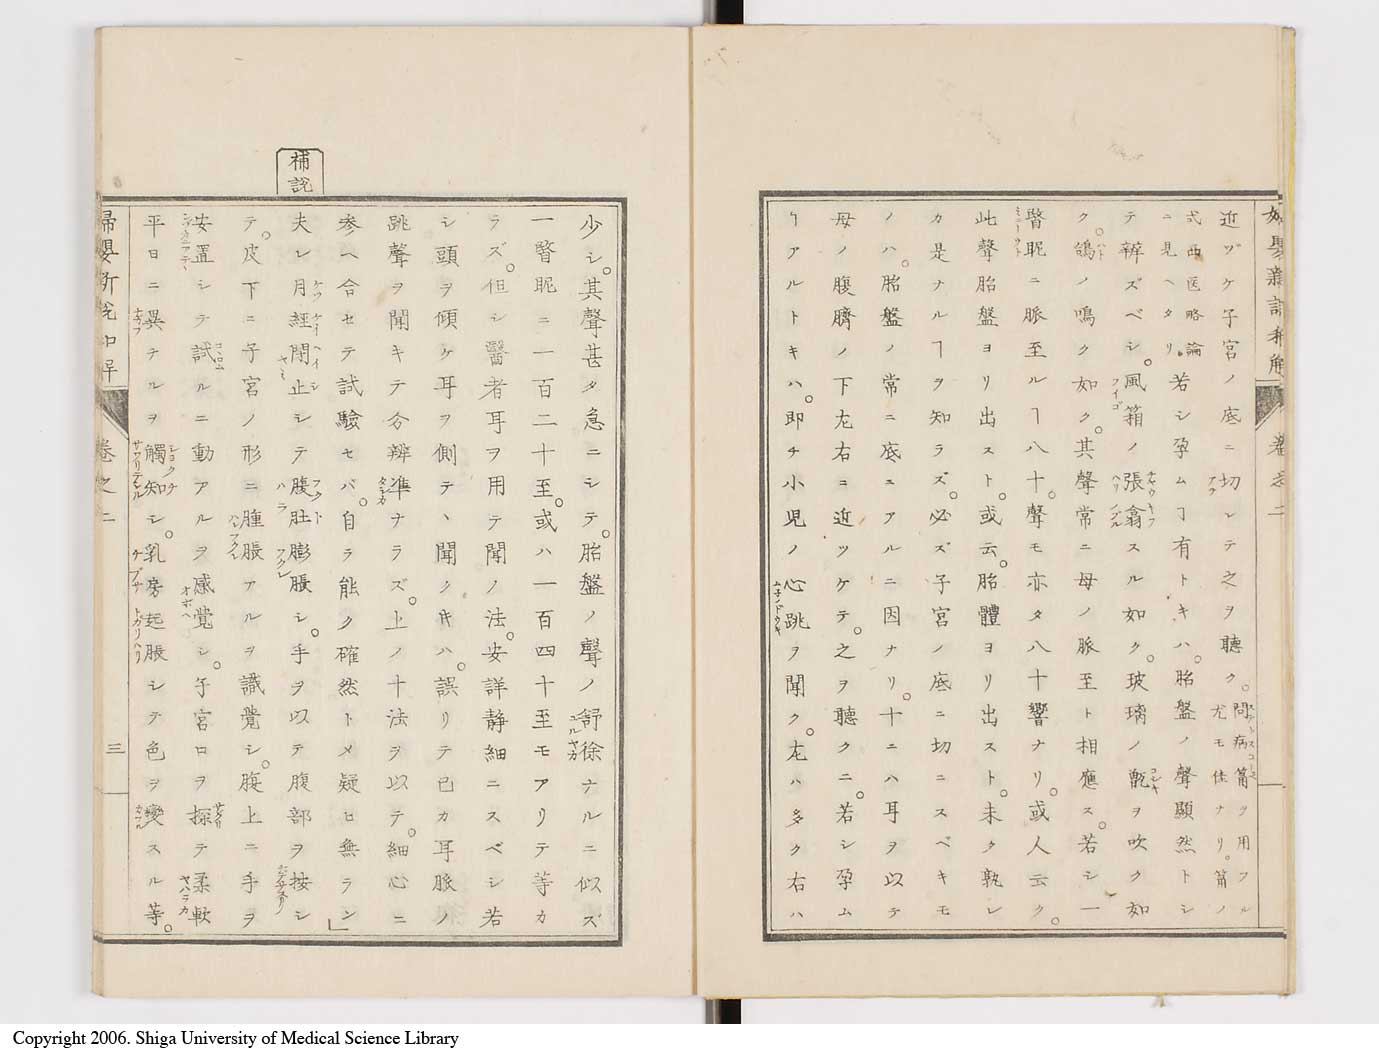 近ヅケ子宮ノ底ニ切シテ之ヲ聽ク。問病筩ヲ用フル尤モ佳ナリ。筩ノ
式西医略論ニ見ヘタリ。若シ孕ムヿ有トキハ。胎盤ノ聲顯然トシ
テ辨ズベシ。風箱ノ張翕スル如ク。玻璃ノ甂ヲ吹ク如
ク。鴿ノ鳴ク如ク。其聲常ニ母ノ脈至ト相應ス。若シ一
瞖眤ニ脈至ルヿ八十。聲モ亦タ八十響ナリ。或人云ク。
此聲胎盤ヨリ出スト。或云。胎體ヨリ出スト。未タ孰レ
カ是ナルヿヲ知ラズ。必ズ子宮ノ底ニ切ニスベキモ
ノハ。胎盤ノ常ニ底ニアルニ因ナリ。十ニハ耳ヲ以テ
母ノ腹臍ノ下左右ニ近ツケテ。之ヲ聽クニ。若シ孕ム
ヿアルトキハ。即チ小児ノ心跳ヲ聞ク。左ハ多ク右ハ
卷之二
一
補說
少シ。其聲甚タ急ニシテ。胎盤ノ聲ノ舒徐ナルニ似ズ
一瞖眤ニ一百二十至。或ハ一百四十至モアリテ等カ
ラズ。但シ醫者耳ヲ用テ聞ノ法。安詳静細ニスベシ若
シ頭ヲ傾ケ耳ヲ側テヽ聞クキハ。誤リテ已カ耳脈ノ
跳聲ヲ聞キテ分辨準ナラズ。上ノ十法ヲ以テ。細心ニ
参ヘ合セテ試驗セバ。自ラ能ク確然トメ疑ヒ無ラン」
夫レ月經閉止シテ腹肚膨脹シ。手ヲ以テ腹部ヲ按シ
テ。皮下ニ子宮ノ形ニ腫脹アルヲ識覺シ。腹上ニ手ヲ
安置シテ試ルニ動アルヲ感覚シ。子宮口ヲ探テ柔軟
平日ニ異ナルヲ觸知シ。乳房起脹シテ色ヲ變スル等。
卷之二
三
Copyright 2006. Shiga University of Medical Science Library